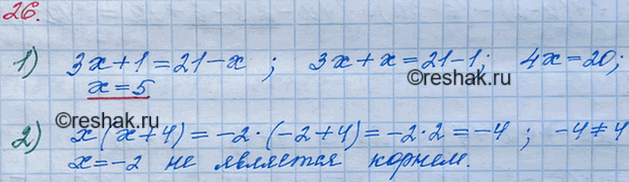 26.
1) 3x+1=21-x ; 3x+x=21-1; 4x=20;
x=5
©reshak.ru
2) x(x+4)=-2·(-2+4)=-2·2=-4 ; -4≠4
©reshak.ru
x=-2 не является корнем.